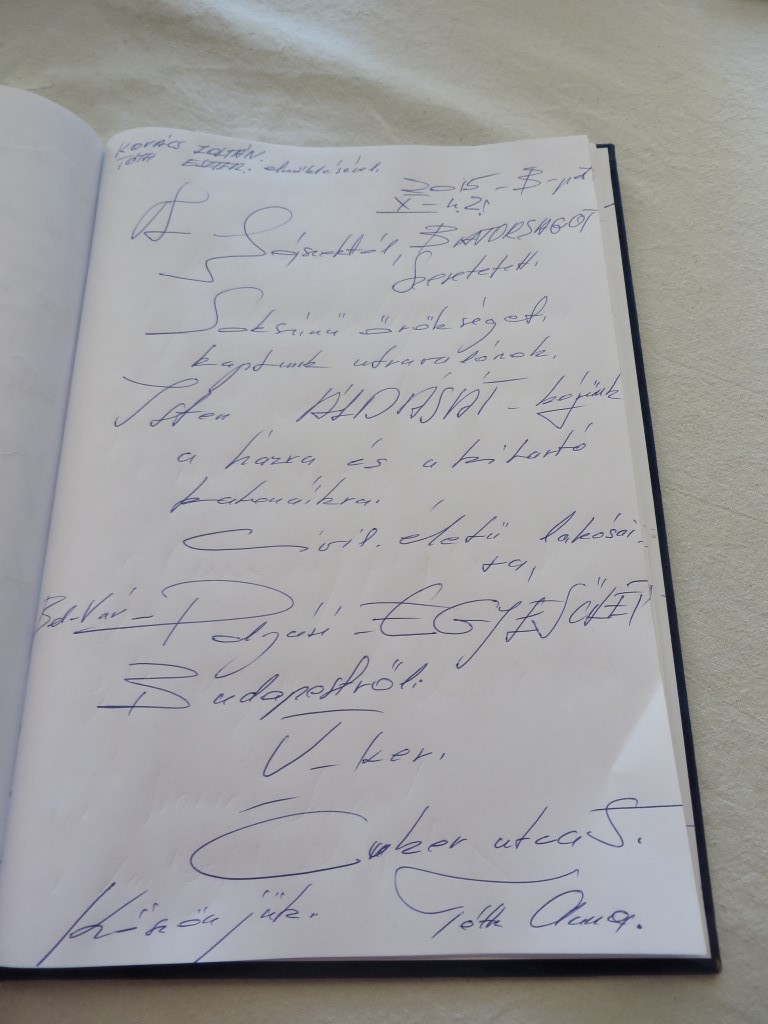 KOVÁCS ZOLTÁN.
TÓTH ESZTER.
2015 - B-pt
X - h. 21
A S BÁTORSÁGOT
Szeretetett.
Sokszínű örökséget.
kaptunk utravalónok.
Isten ÁLDÁSÁT - kérjünk
a házra és a kitartó
katonáikra.
Civil. életű lakósai-
ra,
Bel-Vár - Polgári - EGYESÜLET
Budapestről.
V - ker.
Cuker utca 5.
Köszönjük. Tóth